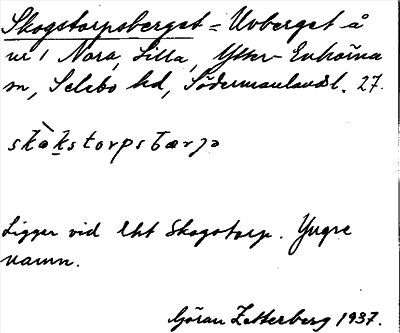 Skogstorpsberget = Uvberget å
nr 1 Nora, Lilla, Ytter-Enhörna
sn, Selebo hd, Södermanlands l. 27.
skå̀kstorpsbærjə
Ligger vid lht Skogstorp. Yngre
namn.
Göran Zetterberg 1937.